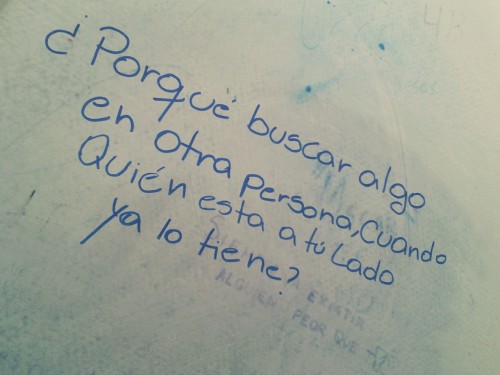 ¿Porqué buscar algo
en otra persona, cuando
Quién esta a tú Lado
ya lo tiene?
EXISTIR
ALGUIEN PEOR QUE